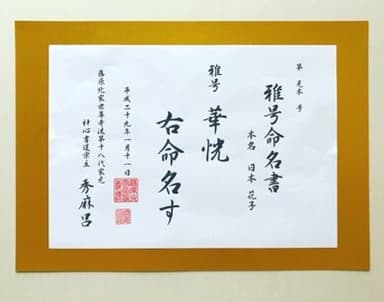 第 見本 号
雅号命名書
本名 日本 花子
雅号 華恍
右命名す
平成二十九年一月十一日
藤原北家世尊寺流第十八代家元
書道宗主 秀麻呂